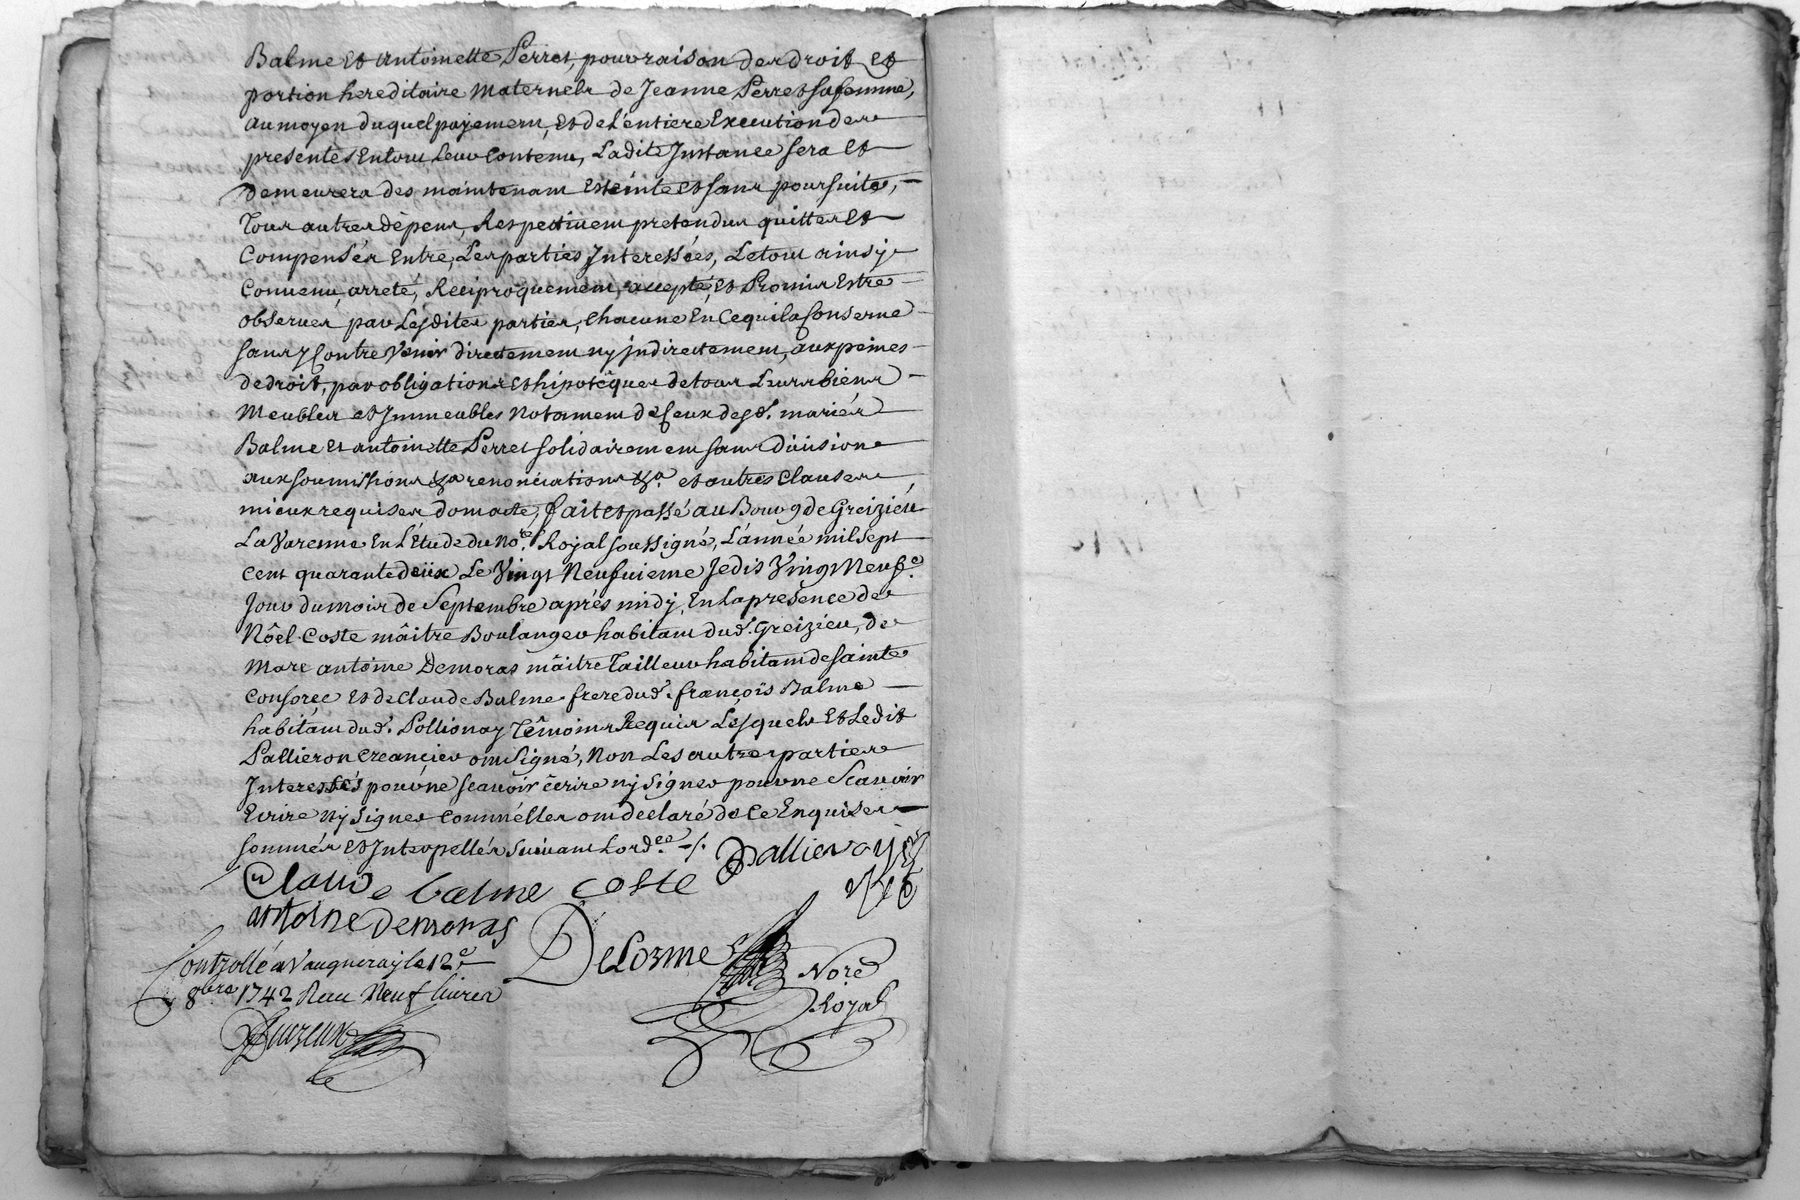 Balme et antoinette Perret, pour raison des droit et
portion hereditaire Maternels de Jeanne Perret sa femme,
au moyen duquel payement, et de L'entiere Execution des
presentes Entout Leur Contenu, Ladite Instance sera et
demeurera des maintenant Esteinte et sans poursuite,
Tous autres dèpens, Respectivem.t pretendus quittes et
Compensés Entre, Les parties Interessées, Le tout ainsÿ
Convenu, arreté, Reciproquement, accepté, et Promis Estre
observer par Lesdites parties, chacune En Ce qui la Conserne
sans y Contre venir directement ny Indirectement, aux peines
de droit, par obligations et hipotêques de tous Leurs biens
Meubles et Immeubles Notament de Ceux desd. mariés
Balme et antoinette Perret solidairement sans Division
aux soumissions &a renonciations &a. et autres Clauses
mieux requises dom acte, fait et passé au Bourg de Greizieu
La Varenne En L'Etude du No.re Royal soussigné, L'année mil sept
cent quarante deüx Le Vingt Neufvieme Jedis Vingt Neuf.e
Jour du mois de Septembre aprés midÿ, En la presence de
Nôel Coste mâitre Boulanger habitant dud. Greizieu, de
Marc antoine Demoras mâitre Tailleur habitant de Sainte
Consorce et de Claude Balme frere dud. françois Balme
habitant dud. Pollionay Têmoins Requis Lesquels et Ledit
Pallieron Creancier ont Signé, Non Les autres parties
Interessées pour ne scavoir ècrire nÿ Signer pour ne Scavoir
Ecrire Ny Signer Comm'elles ont declaré de ce Enquises
sommés et Interpellés Suivant Lord.ce -/.
Claude balme Coste
antoine Demoras
Delorme
Nore
Royal
Controllé a Vaugneray le 12e
8bre 1742 Reçu Neuf livres